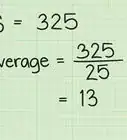 = 325
verage = 325
25
= 13